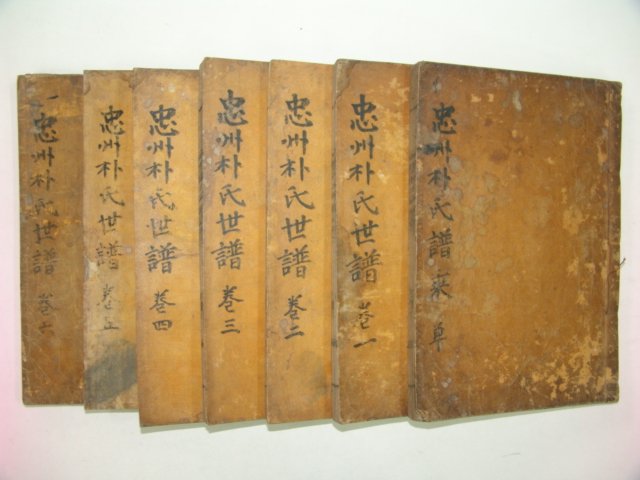 忠州朴氏譜
忠州朴氏世譜 卷一
忠州朴氏世譜 卷二
忠州朴氏世譜 卷三
忠州朴氏世譜 卷四
忠州朴氏世譜 卷五
忠州朴氏世譜 卷六